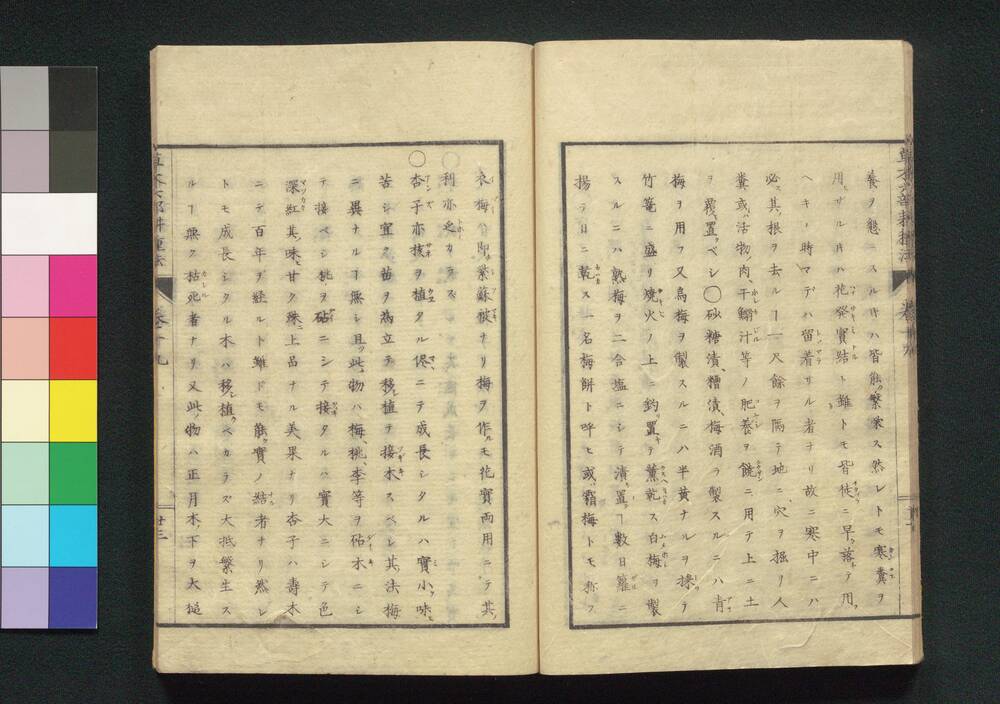 養ヲ怠ニスル片ハ皆能ク繁榮ス然レトモ寒糞ヲ
用ザル片ハ花發實結ト雖トモ皆徒ニ早ク落テ用
ヘキノ時マデハ留着リル者ナリ故ニ寒中ニハ
必ス其根ヲ去ルヿ一尺餘ヲ隔テ地ニ穴ヲ掘リ人
糞或ハ活物ノ肉、干鰯汁等ノ肥養ヲ饒ニ用テ上ニ土
ヲ覆置ベシ〇砂糖漬、糟漬、梅酒ヲ製スルニハ青
梅ヲ用フ又烏梅ヲ製スルニハ半黄ナルヲ採リ
竹篭ニ盛リ燒火ノ上ニ釣リ置キ薫乾ス白梅ヲ製
スルニハ熟梅ヲ二合塩ニシテ漬置ヿ數日籮ニ
揚テ日ニ乾ス一名梅餅ト呼ヒ或ハ霜梅トモ称フ
衣梅ハ即紫蘇被ナリ梅ヲ作ルモ花實両用ニテ其
利亦少カラズ
〇杏子亦核ヲ植タル侭ニテ成長シタルハ實小ク味
苦シ宜ク苗ヲ為立テ移シ植テ接木スベシ其法梅
ニ異ナルヿ無シ且ツ此物ハ梅、桃、李等ヲ砧木ニシ
テ接ベシ桃ヲ砧ニシテ接タルハ實大ニシテ色
深紅其味甘ク殊ニ上品ナル美果ナリ杏子ハ壽木
ニテ百年ヲ経ルト雖ドモ能ク實ノ結者ナリ然レ
トモ成長シタル木ハ移シ植ベカラズ大抵繁生ス
ルヿ無ク枯死者ナリ又此物ハ正月木ノ下ヲ大槌
草木六部耕種法
卷十九
廿三